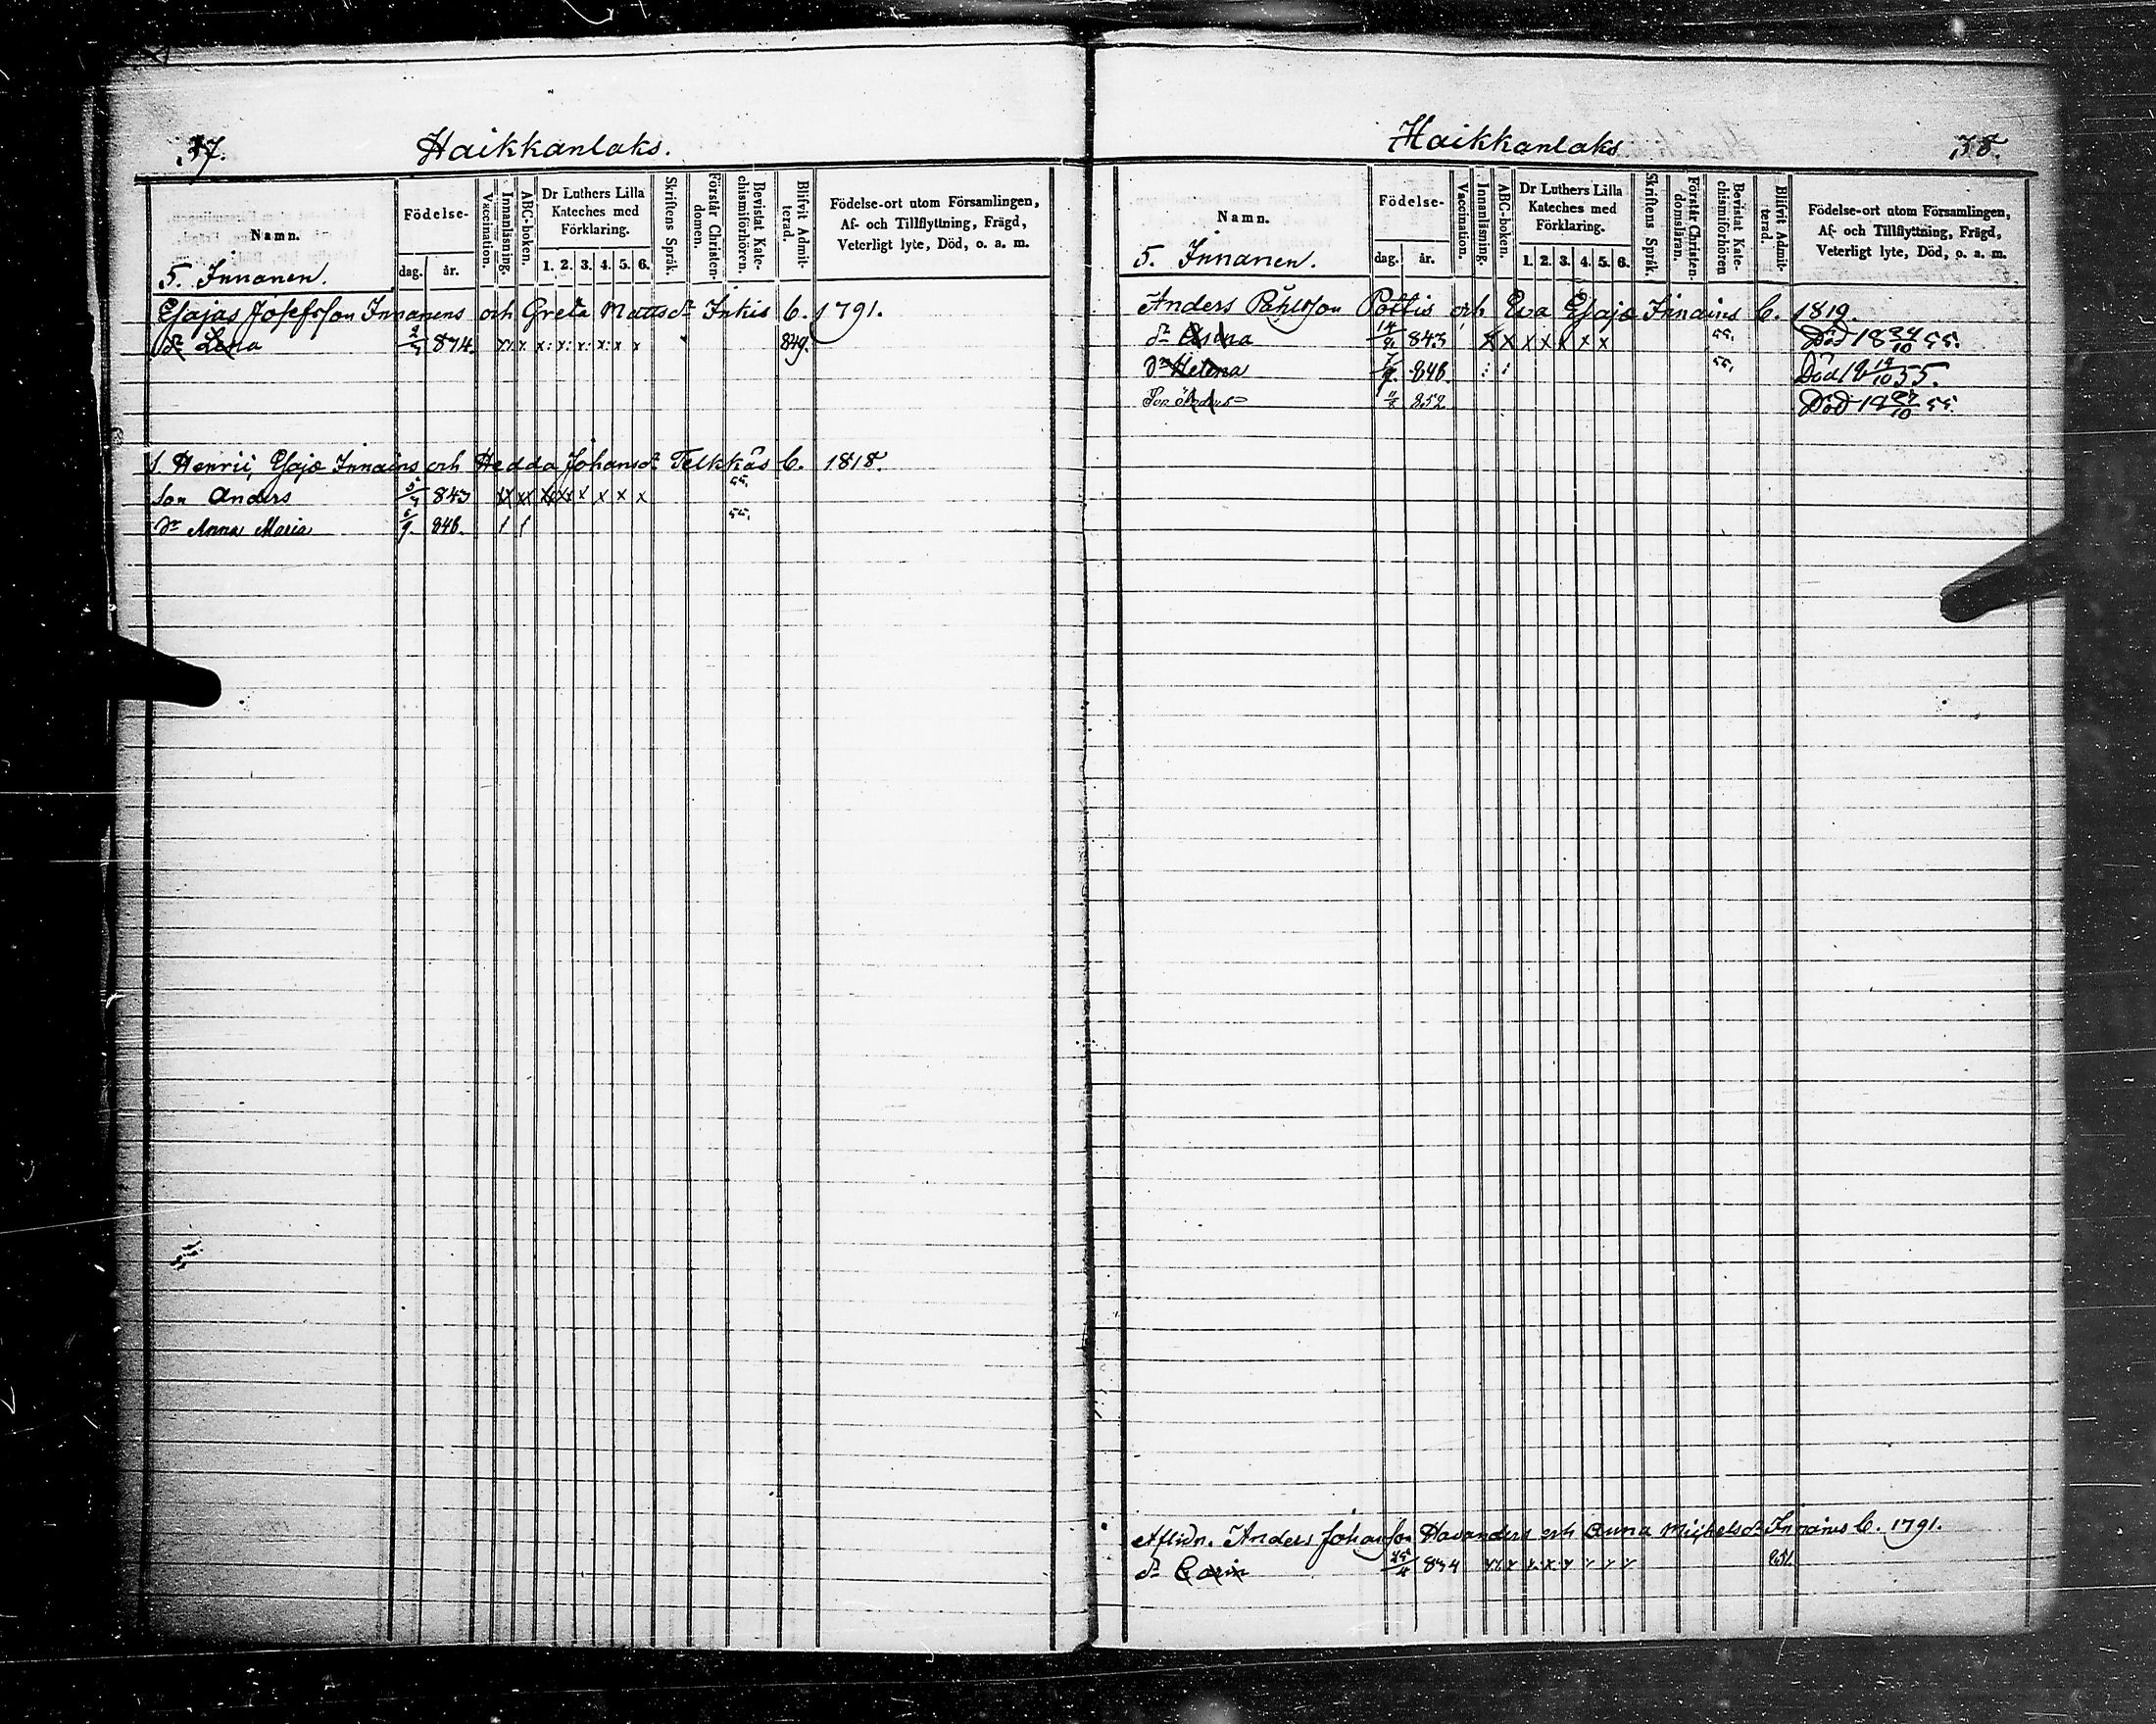 37.
Haikkanlaks.
Namn.
Födelse-
dag. år.
Vaccination.
Innanläsning.
ABC-boken.
Dr Luthers Lilla Kateches med Förklaring.
1. 2. 3. 4. 5. 6.
Skriftens Språk.
Förstår Christen-domen.
Bevistat Kate-chismiförhören.
Blifvit Admit-terad.
Födelse-ort utom Församlingen,
Af- och Tillflyttning, Frägd,
Veterligt lyte, Död, o. a. m.
5. Innanen.
Esajas Josefsson Innanens och Greta Mattsdr Inkis C. 1791.
dr Lena 834. x x x x x x x x 849.
s. Henrii Esajæ Innains och Hedda Johansdr Telkkäs C. 1818.
Son Anders 5/7 843 xx xx xx xx x x x x 55.
dr Anna Maria 6/9. 848. / / 55.
Haikkanlaks
38.
Namn.
Födelse-
dag. år.
Vaccination.
Innanläsning.
ABC-boken.
Dr Luthers Lilla Kateches med Förklaring.
1. 2. 3. 4. 5. 6.
Skriftens Språk.
Förstår Christen-domsläran.
Bevistat Kate-chismiförhören
Blifvit Admit-terad.
Födelse-ort utom Församlingen,
Af- och Tillflyttning, Frägd,
Veterligt lyte, Död, o. a. m.
5. Innanen.
Anders Påhlsson Pottis och Eva Esajæ Innains C. 1819.
dr 843 x x x x x x x 55. Död 18 24/10 55.
dr Helena 7/9. 848. 55. Död 18 14/10 55.
Son Anders 852 Död 18 27/10 55.
Aflidn. Anders Johansson Havanders och Anna Michelsdr Innains C. 1791.
dr Carin 25/4 834 x x x x x x x x 851